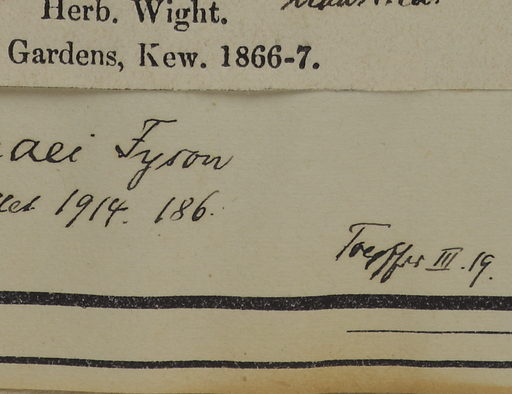 Herb. Wight.
Gardens, Kew. 1866-7.
aei Fyson
1914. 186.
Toepffer III. 19.